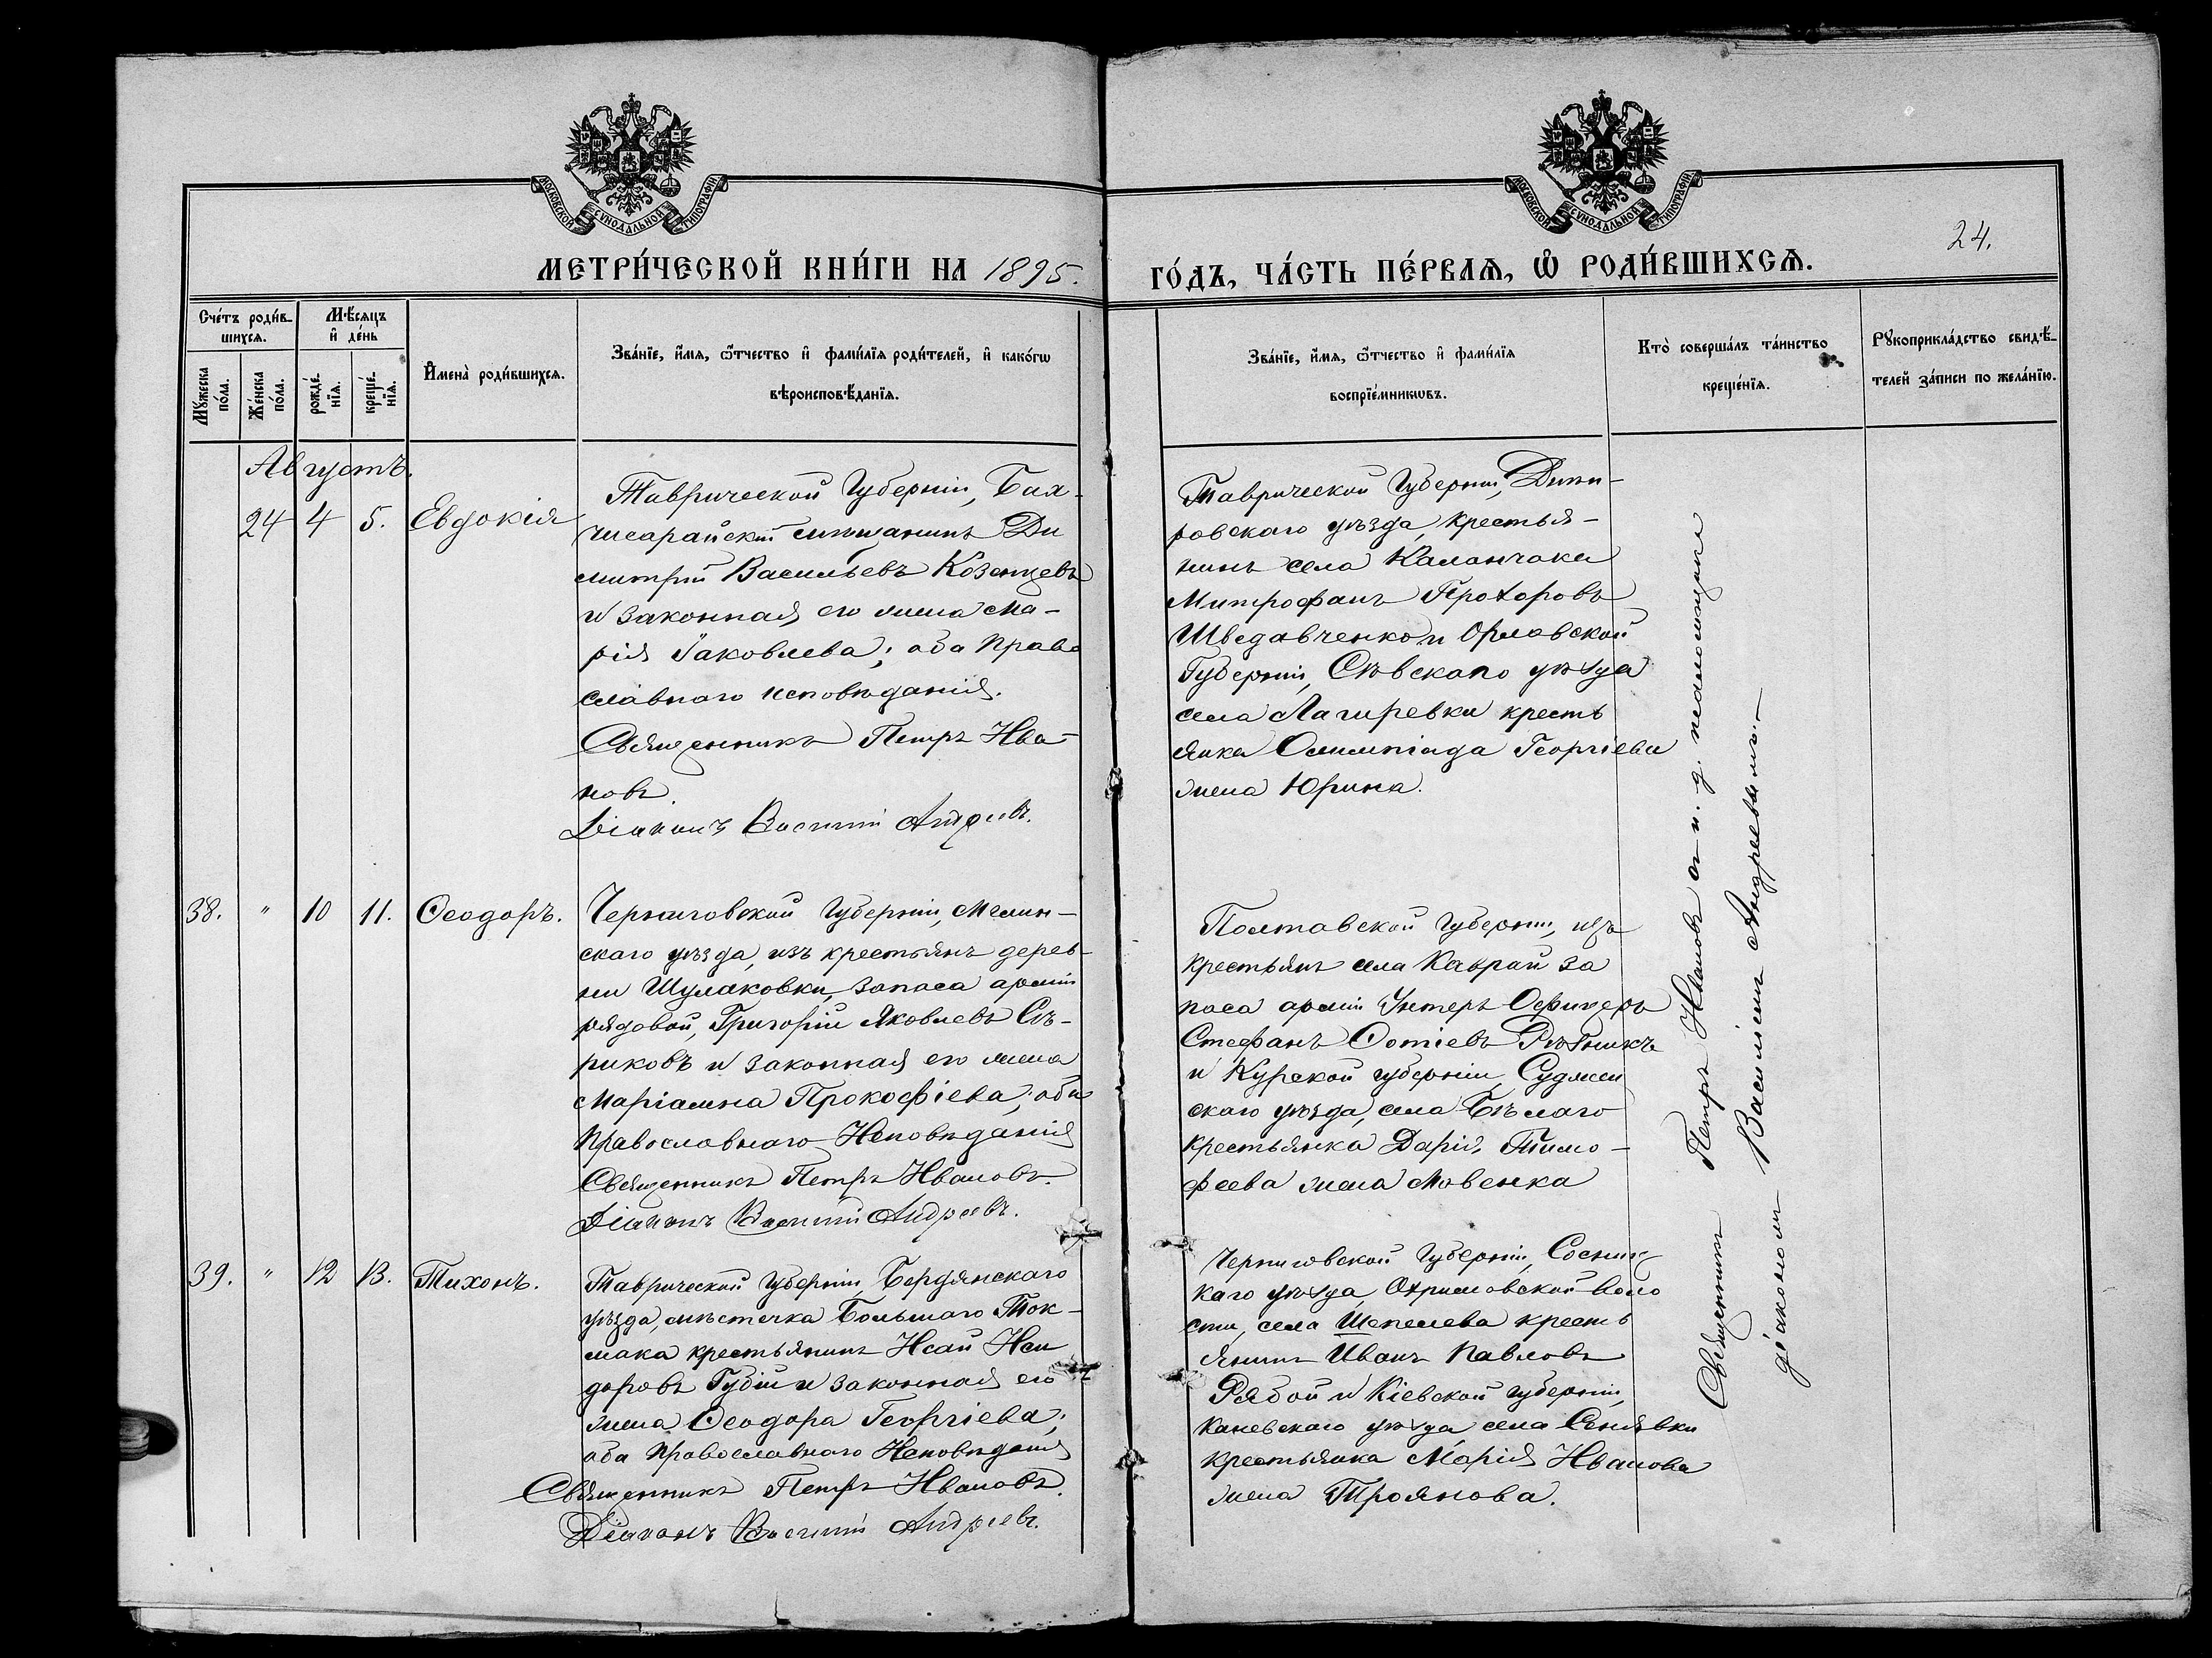 МОСКОВСКОЙ СУНОДАЛЬНОЙ ТИПОГРАФІИ
МОСКОВСКОЙ СУНОДАЛЬНОЙ ТИПОГРАФІИ
24.
МЕТРИ́ЧЕСКОЙ КНИ́ГИ НА 1895. ГО́ДЪ, ЧА́СТЬ ПЕ́РВАѦ, Ѡ РОДИ́ВШИХСѦ.
Сче́тъ роди́в-
шихсѧ.
Мѣ́сяцъ
и̂ де́нь
Мꙋ́жеска по́ла.
Же́нска по́ла.
рожде́-
нїѧ.
креще́-
нїѧ.
И̂мена̀ роди́вшихсѧ.
Зва́нїе, и̂́мѧ, ѿ́тчество и̂ фами́лїѧ роди́телей, и̂ како́гѡ
вѣроисповѣ́данїѧ.
Зва́нїе, и̂́мѧ, ѿ́тчество и̂ фами́лїѧ
воспрїе́мникѡвъ.
Кто̀ соверша́лъ та́инство
креще́нїѧ.
Рꙋкоприкла́дство свидѣ́-
телей за́писи по жела́нїю.
Августъ.
24 4 5. Евдокія
Таврической Губерніи, Бах-
чисарайскій мѣщанинъ Ди
митрій Васильевъ Козенцевъ
и законная его жена Ма-
рія Іаковлева; оба Право
славнаго исповѣданія.
Священникъ Петръ Ива-
новъ.
Діаконъ Василій Андреевъ.
Таврической Губерніи, Днѣп-
ровскаго уѣзда, крестья-
нинъ села Каланчака
Митрофанъ Прохоровъ
Шведавченко и Орловской
Губерніи, Сѣвскаго уѣзда
села Лагиревки кресть
янка Олимпіада Георгіева
жена Юрина.
38. " 10 11. Ѳеодоръ.
Черниговской Губерніи, Мглин-
скаго уѣзда, изъ крестьянъ дерев-
ни Шулаковки, запаса арміи
рядовой, Григорій Яковлевъ Сѣ-
риковъ и законная его жена
Маріамна Прокофіева; оба
Православнаго Исповѣданія
Священникъ Петръ Ивановъ.
Діаконъ Василій Андреевъ.
Полтавской Губерніи, изъ
крестьянъ села Каврай за
паса арміи Унтеръ Офицеръ
Стефанъ Фотіевъ Рѣзникъ
и Курской губерніи, Суджан
скаго уѣзда, села Бѣлаго
крестьянка Дарія Тимо-
феева жена Мовенка
39. " 12 13. Тихонъ.
Таврической Губерніи, Бердянскаго
уѣзда, мѣстечка Большаго Ток-
мака крестьянинъ Исай Иси
доровъ Губій и законная его
жена Ѳеодора Георгіева;
оба Православнаго Исповѣданія
Священникъ Петръ Ивановъ.
Діаконъ Василій Андреевъ.
Черниговской Губерніи, Сосниц
каго уѣзда, Охримовской воло
сти, села Шепелева кресть
янинъ Иванъ Павловъ
Рябой и Кіевской губерніи,
Каневскаго уѣзда села Синявки
крестьянка Марія Иванова
жена Троянова.
Священникъ Петръ Ивановъ съ и. д. псаломщика
діакономъ Василіемъ Андреевымъ.